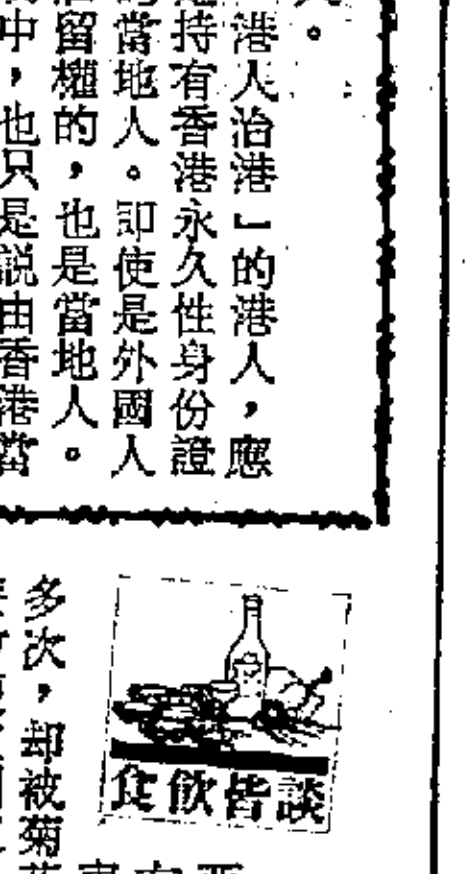 港人治港」的港人，應
持有香港永久性身份證
當地人。即使是外國人
留權的，也是當地人。
中，也只是説由香港當
食飲皆談
多次，却被菊